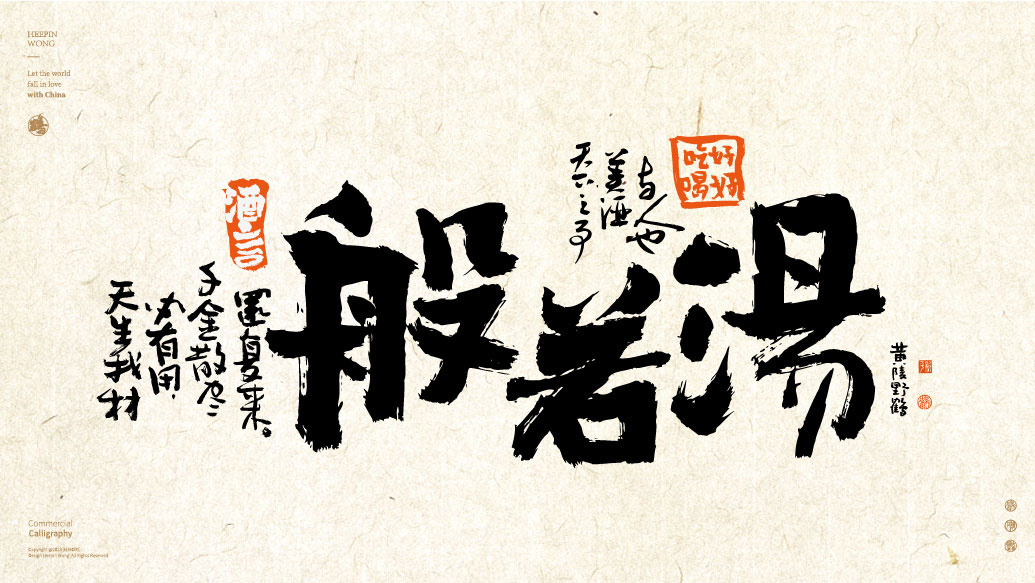 HEEPIN
WONG
Let the world
fall in love
with China
吃好
喝好
天下之事
美酒
与人也
般若湯
天生我材
必有用
千金散尽
還复来。
黄陵野鶴
Commercial
Calligraphy